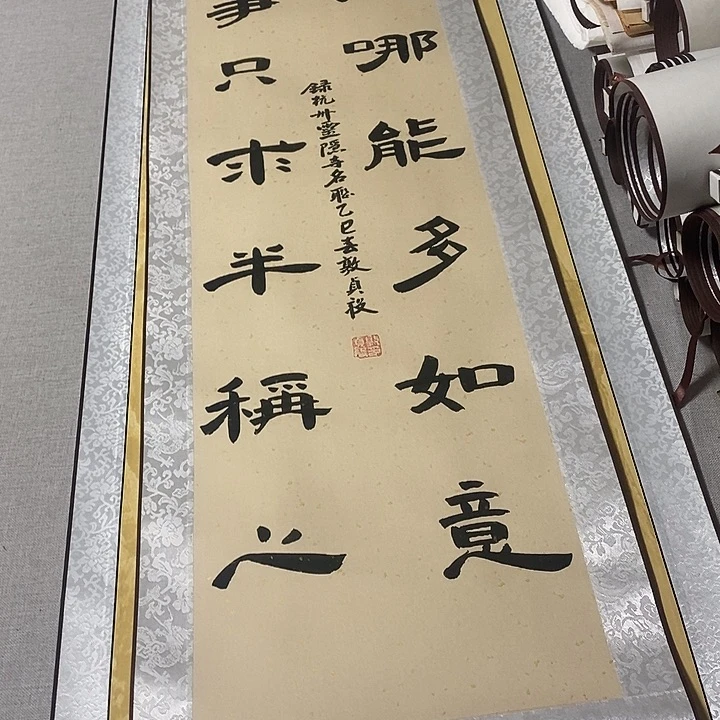 哪能多如意
事只求半稱心
録杭州靈隱寺名聯乙巳春敦貞